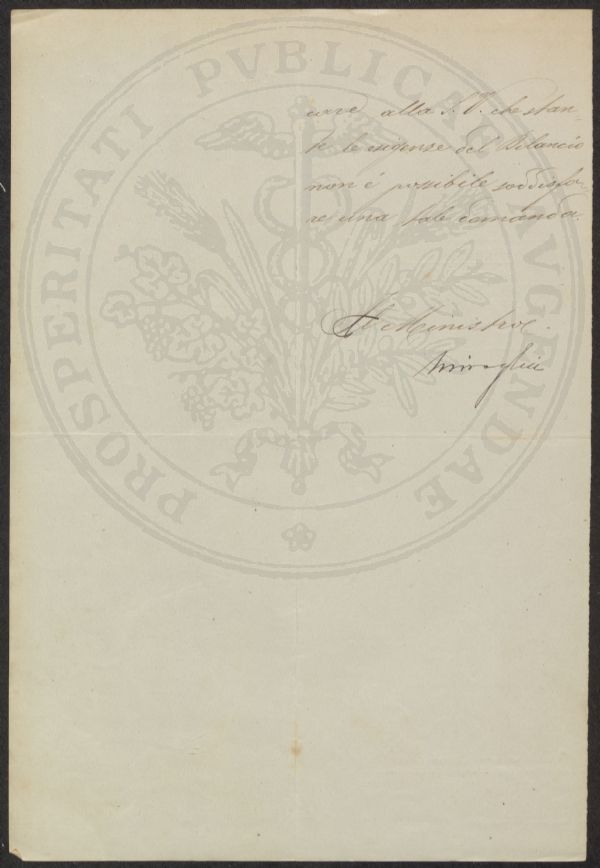 PROSPERITATI PVBLICAE AVGENDAE
care alla S.V. che stan-
te le esigenze del Bilancio
non è possibile soddisfa-
re una tale domanda.
Il Ministro
Miraglia